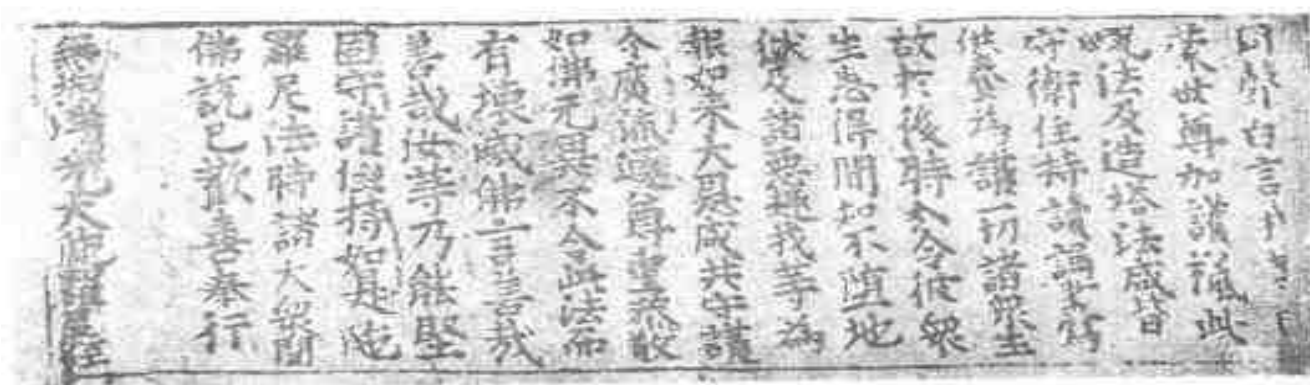 同聲白言我等
蒙世尊加護授此
呪法及造塔法咸皆
守衛住持讀誦書寫
供養爲護一切諸衆生
故於後時分令彼衆
生悉得聞知不墮地
獄及諸惡趣我等爲
報如來大恩咸共守護
令廣流通尊重恭敬
如佛元異不令此法而
有壞滅佛言善哉
善哉汝等乃能堅
固守護住持如是陁
羅尼法時諸大衆聞
佛說已歡喜奉行
無垢淨光大陁羅尼經